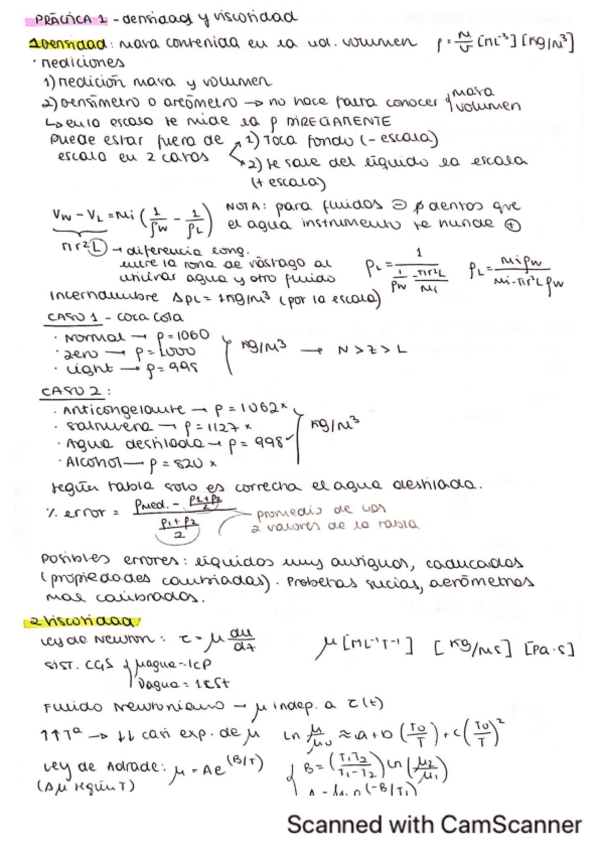 PRÁCTICA 1 - densidad y viscosidad
1 Densidad: masa contenida en la ud. volumen ρ = M/V [ML⁻³] [kg/m³]
· Mediciones
1) Medición masa y volumen
2) Densímetro o areómetro → no hace falta conocer { masa volumen
↳ en la escala se mide la ρ DIRECTAMENTE
Puede estar fuera de escala en 2 casos
1) Toca fondo (- escala)
2) Se sale del líquido la escala (+ escala)
Vw - VL = Mi (1/ρw - 1/ρL)
πr²L → diferencia long. entre la zona de vástago al utilizar agua y otro fluido
NOTA: para fluidos ⊖ densos que el agua instrumento se hunde ⊕
ρL = 1 / (1/ρw - πr²L/Mi)
ρL = Mi ρw / (Mi - πr²L ρw)
Incertidumbre ΔρL = 1 kg/m³ (por la escala)
CASO 1 - coca cola
· Normal → ρ = 1060
· Zero → ρ = 1000
· Light → ρ = 995
} kg/m³ → N > Z > L
CASO 2:
· Anticongelante → ρ = 1062 x
· Salmuera → ρ = 1127 x
· Agua destilada → ρ = 998 ✓
· Alcohol — ρ = 820 x
} kg/m³
según tabla solo es correcta el agua destilada.
% error = (ρmed. - (ρ1+ρ2)/2) / ((ρ1+ρ2)/2)
promedio de los 2 valores de la tabla
Posibles errores: líquidos muy antiguos, caducados
(propiedades cambiadas). Probetas sucias, aerómetros
mal calibrados.
2 Viscosidad
Ley de Newton: τ = μ du/dy μ [ML⁻¹T⁻¹] [kg/ms] [Pa·s]
SIST. CGS { μagua = 1cP
νagua = 1cSt
Fluido Newtoniano → μ indep. a τ(t)
↑↑Tª → ↓↓ casi exp. de μ Ln μ/μ0 ≈ a + b (T0/T) + c (T0/T)²
Ley de Adrade: μ = Ae^(B/T) { B = (T1T2/T1-T2) Ln (μ2/μ1)
(Δμ según T)
Scanned with CamScanner